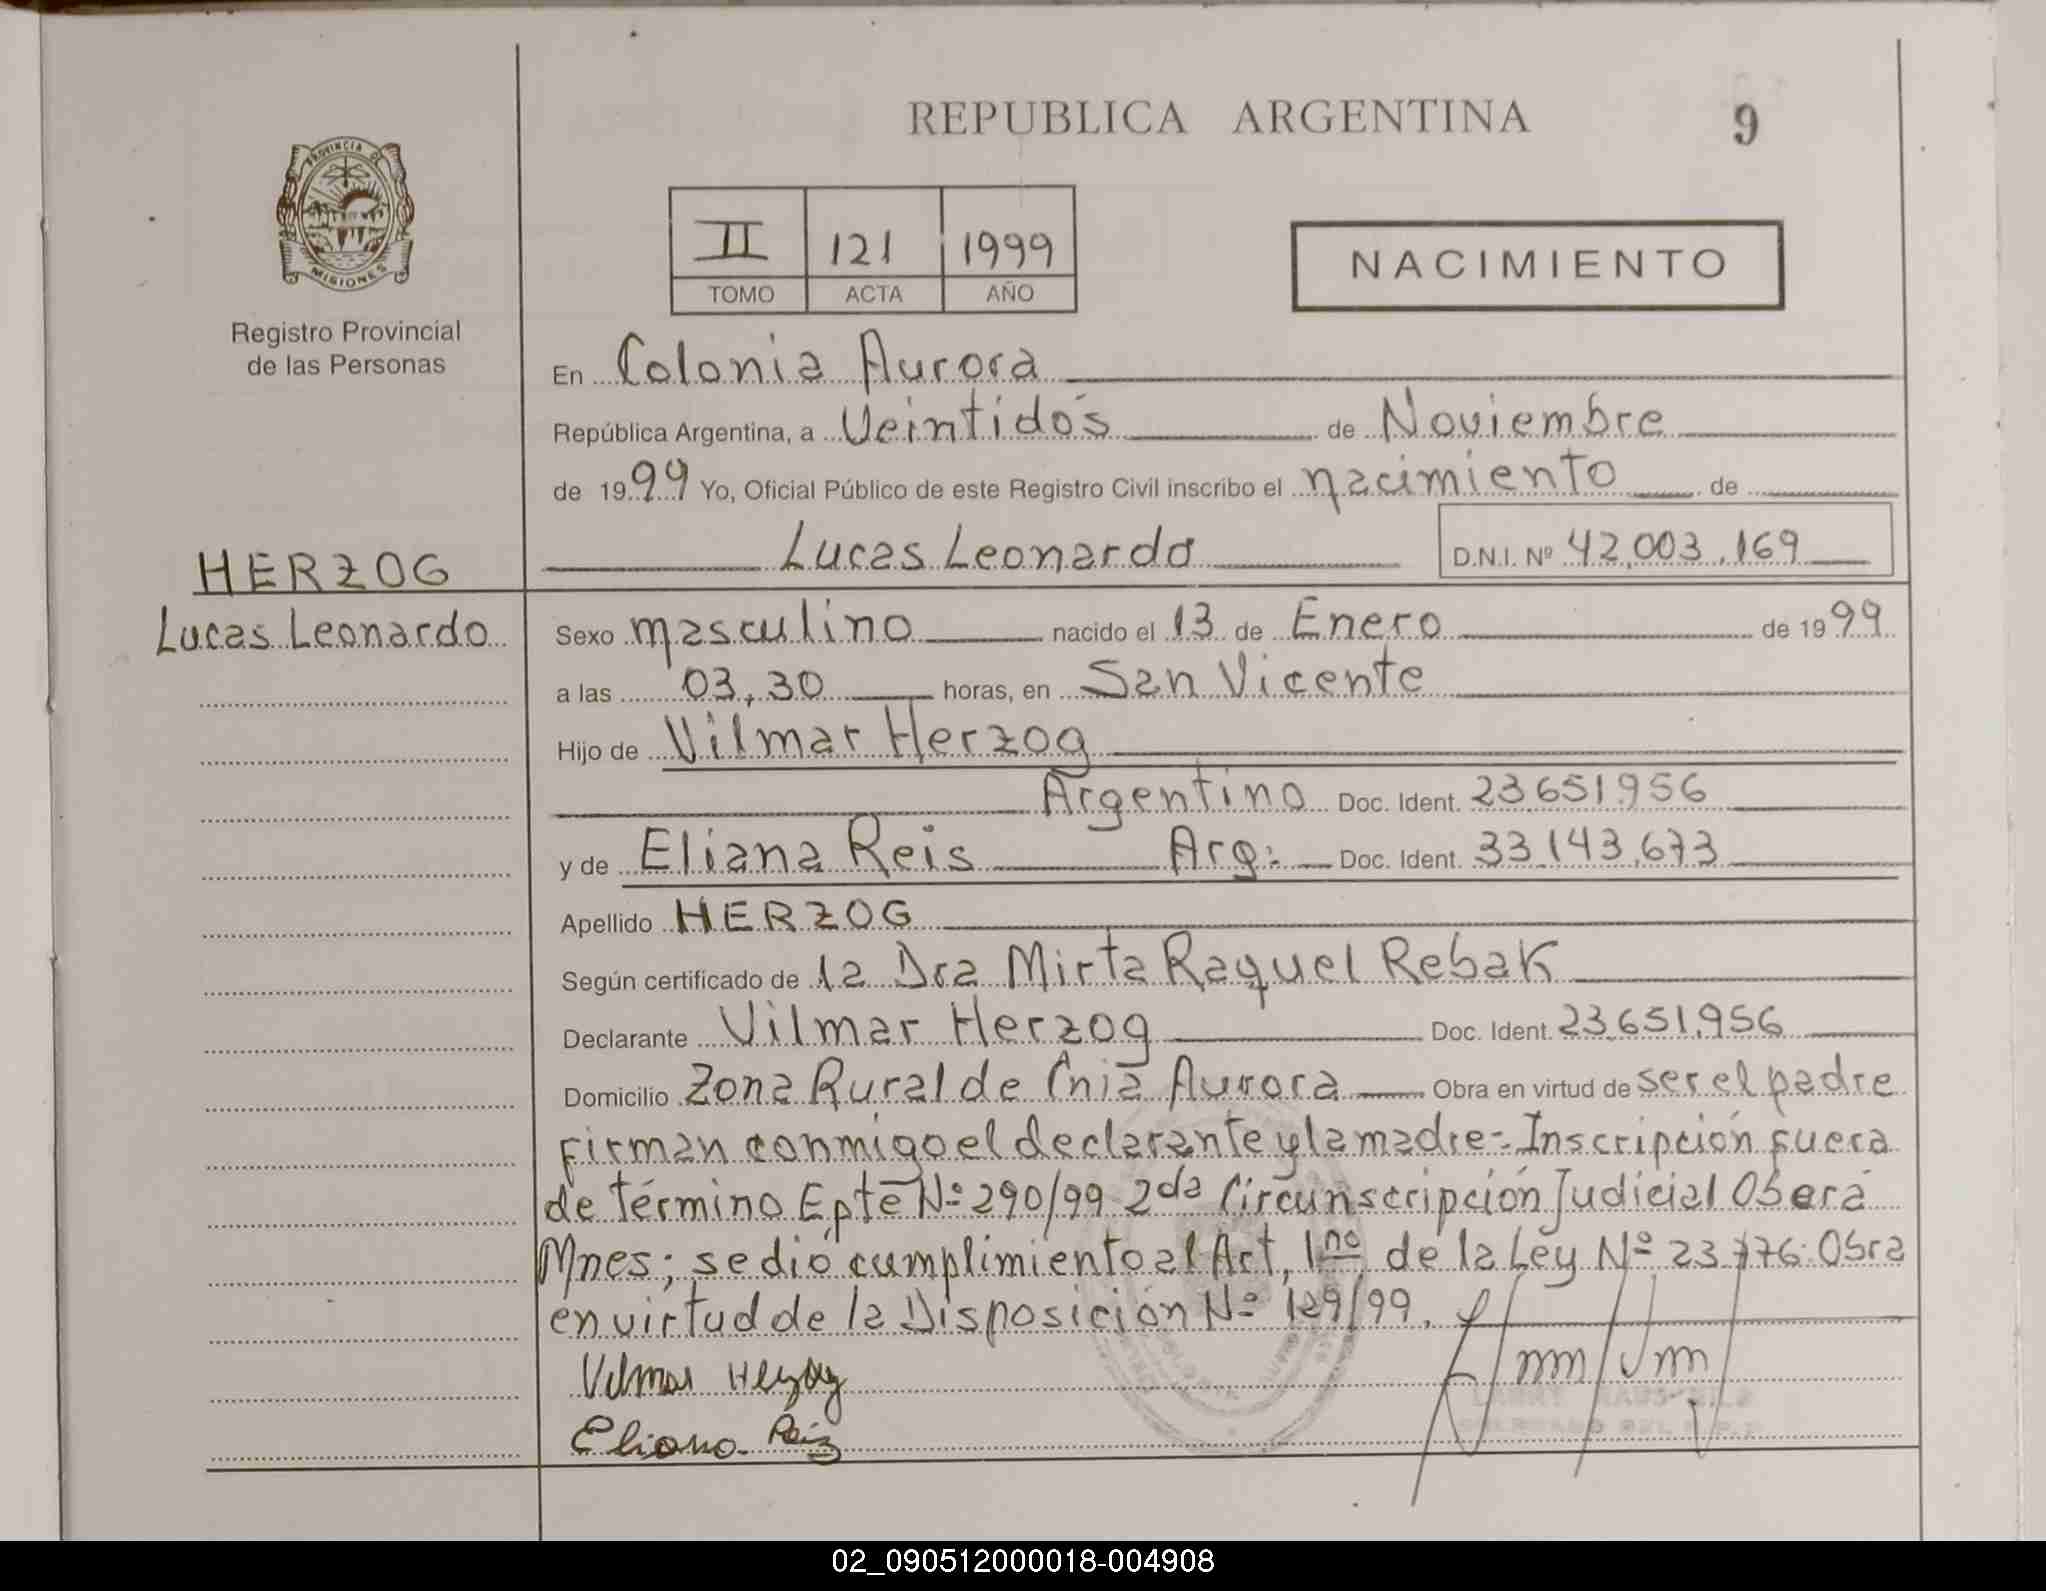 REPUBLICA ARGENTINA
9
PROVINCIA DE
MISIONES
Registro Provincial
de las Personas
II 121 1999
TOMO ACTA AÑO
NACIMIENTO
En Colonia Aurora
República Argentina, a Veintidós de Noviembre
de 1999 Yo, Oficial Público de este Registro Civil inscribo el nacimiento de
Lucas Leonardo D.N.I. Nº 42.003.169
HERZOG
Lucas Leonardo
Sexo masculino nacido el 13 de Enero de 1999
a las 03,30 horas, en San Vicente
Hijo de Vilmar Herzog
Argentino Doc. Ident. 23.651.956
y de Eliana Reis Arg: Doc. Ident. 33.143.673
Apellido HERZOG
Según certificado de la Dra Mirta Raquel Rebak
Declarante Vilmar Herzog Doc. Ident. 23.651.956
Domicilio Zona Rural de Cnia Aurora Obra en virtud de ser el padre
firman conmigo el declarante y la madre=. Inscripción fuera
de término Epte Nº 290/99 2da Circunscripción Judicial Oberá
Mnes; se dió cumplimiento al Art, 1no de la Ley Nº 23.776. Obra
en virtud de la Disposición Nº 129/99.
Vilmar Herzog
Eliana Reis
02_090512000018-004908